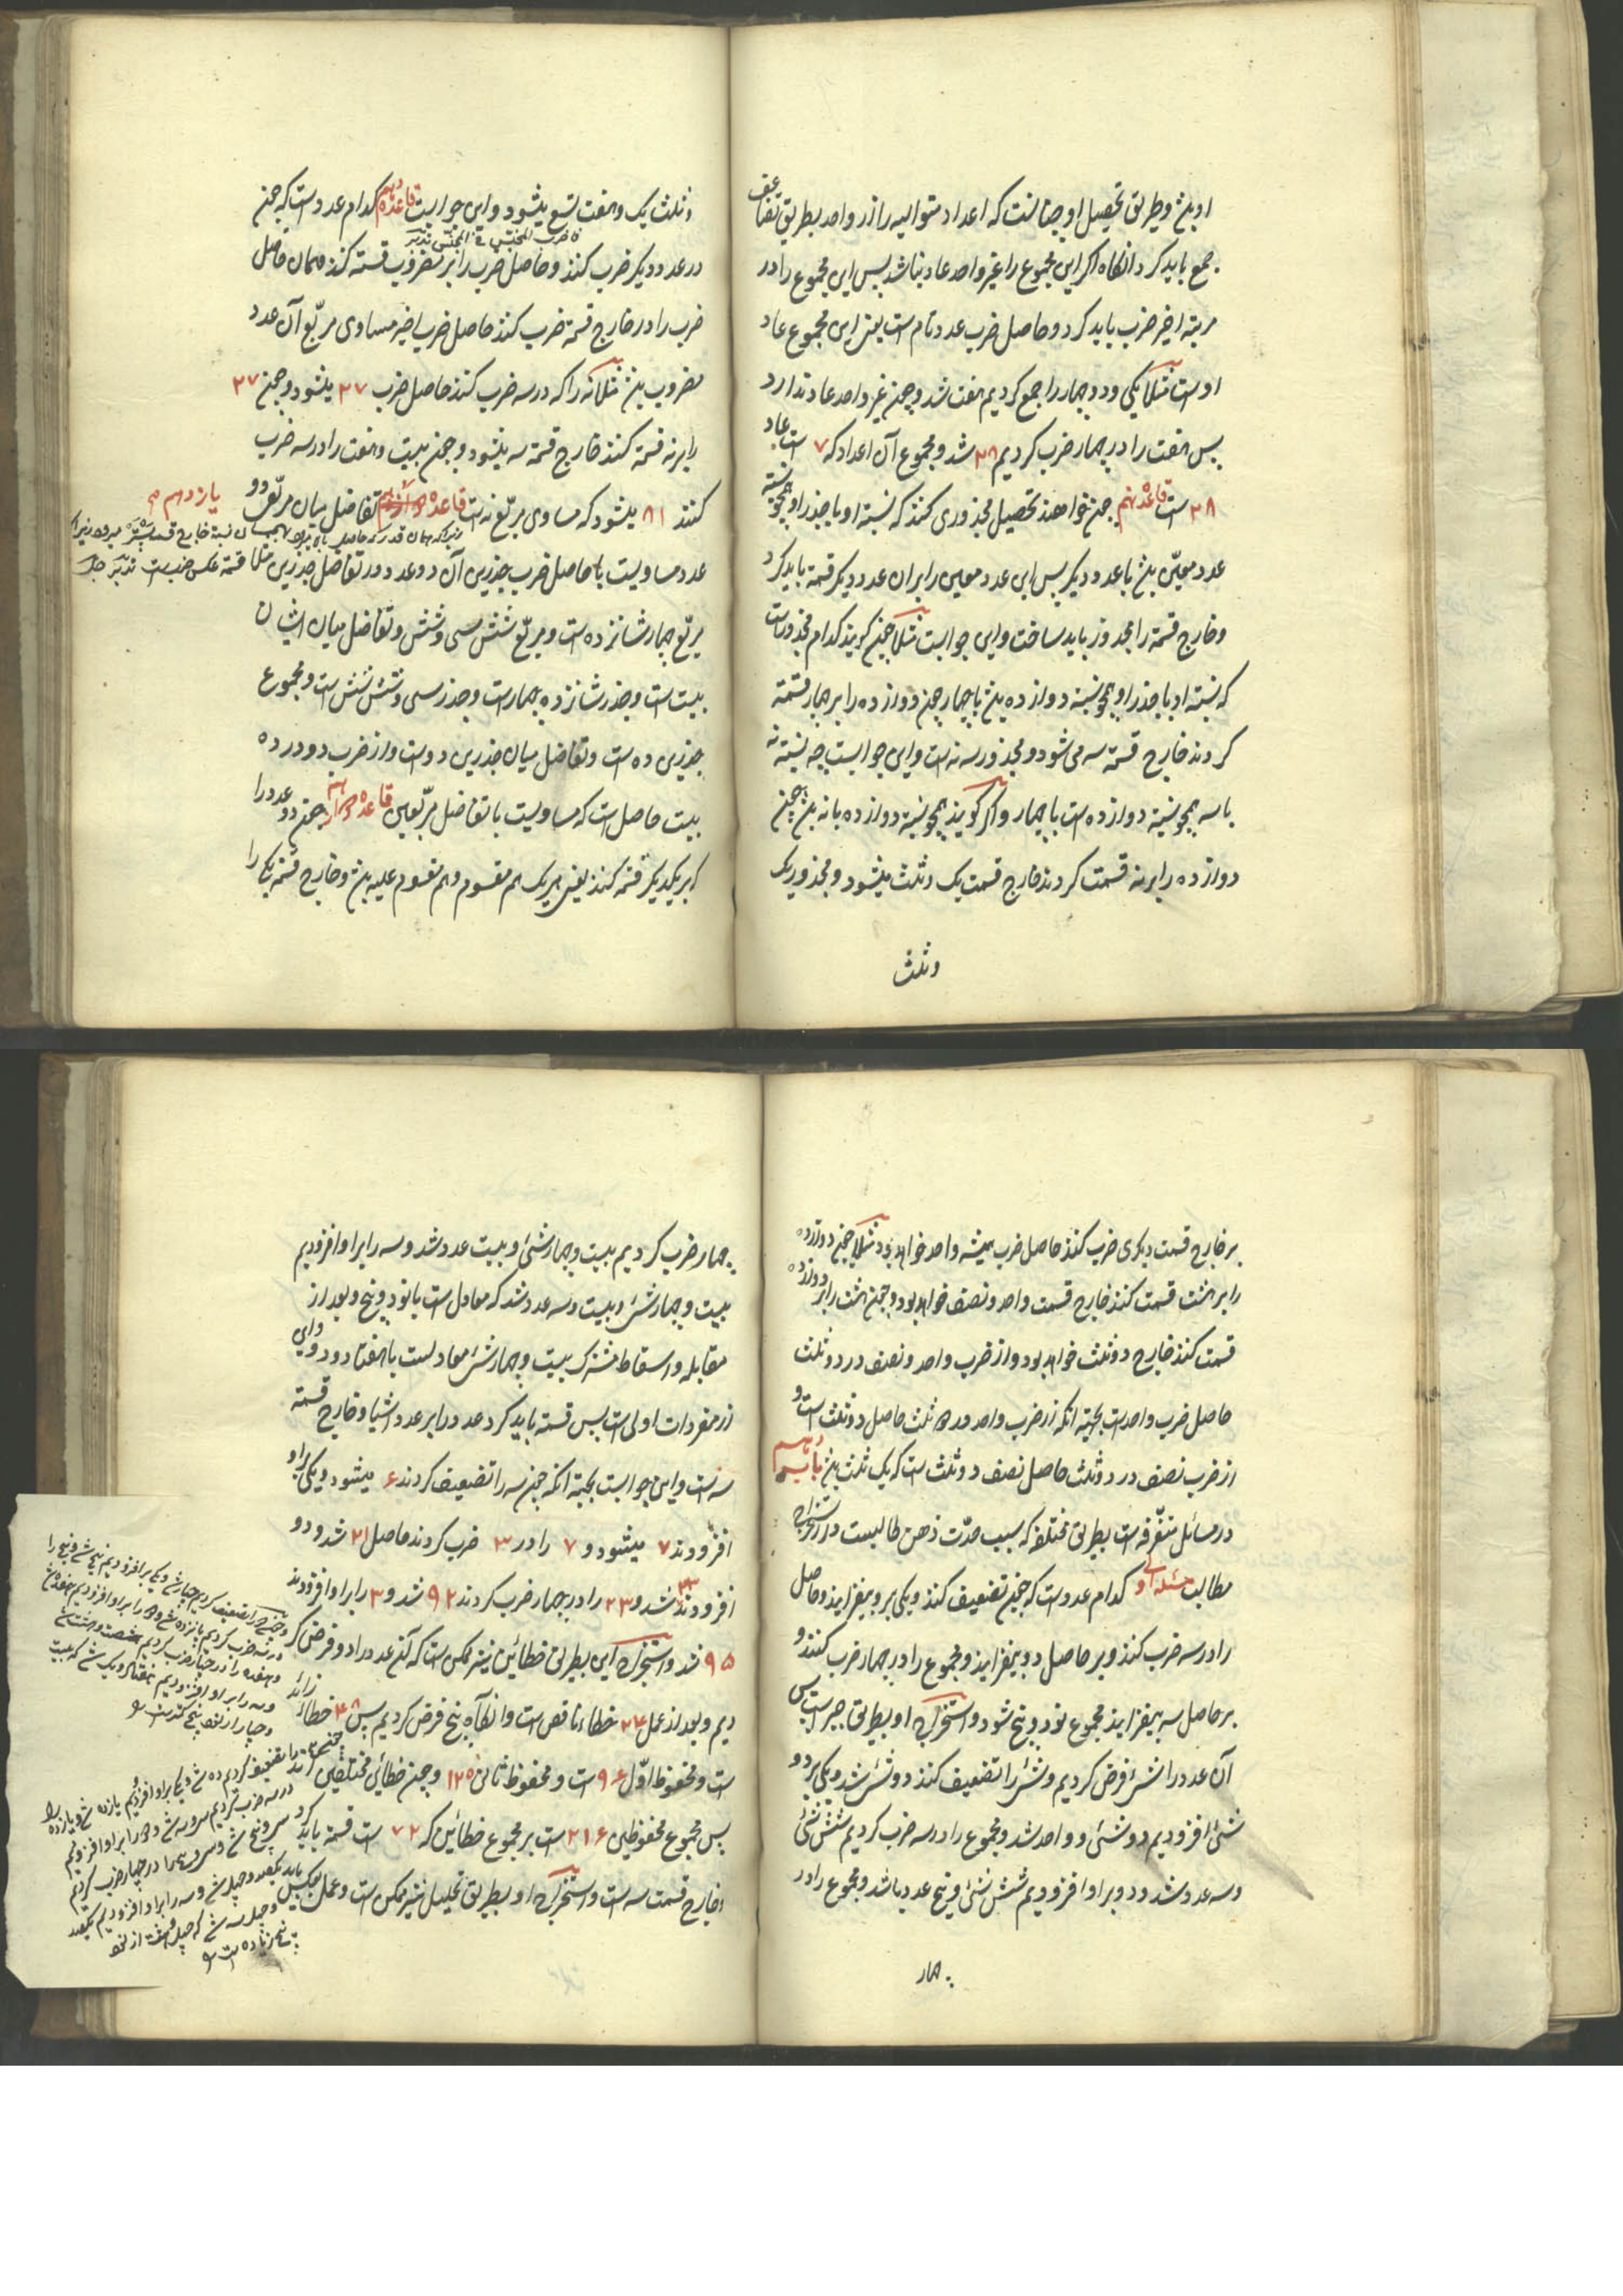 او بین و طریق تحصیل او چنانست که اعداد متوالیه را از واحد بطریق تضاعف
جمع باید کرد و انگاه اگر این مجموع را غیر واحد عاد نباشد پس این مجموع را در
مرتبه اخیر ضرب باید کرد و حاصل ضرب عدد تام است یعنی این مجموع عاد
اوست مثلا یکی و دو و چهار را جمع کردیم هفت شد و چون غیر واحد عاد ندارد
پس هفت را در چهار ضرب کردیم ۲۸ شد و مجموع آن اعداد که ۷ است عاد
۲۸ است قاعده نهم چون خواهند تحصیل مجذوری کنند که نسبة او با جذر او همچو نسبة
عدد معین بین با عدد دیگر پس این عدد معین را بران عدد دیگر قسمة باید کرد
و خارج قسمة را مجذور باید ساخت و این جوابست مثلا چون گویند کدام مجذور است
که نسبة او با جذر او همچو نسبة دوازده بین با چهار چون دوازده را بر چهار قسمة
کردند خارج قسمة سه می شود و مجذور سه نه است و این جوابست چه نسبة نه
با سه همچو نسبة دوازده است با چهار و اگر گویند همچو نسبة دوازده با نه بین چون
دوازده را بر نه قسمت کردند خارج قسمت یک و ثلث میشود و مجذور یک
و ثلث
و ثلث یک و هفت تسع میشود و این جوابست قاعده دهم کدام عدد است که چون
در عدد دیگر ضرب کنند و حاصل ضرب را بر مضروب قسمة کنند و همان حاصل
ضرب را در خارج قسمة ضرب کنند حاصل ضرب اخیر مساوی مربّع آن عدد
مضروب بین مثلا نه را که در سه ضرب کنند حاصل ضرب ۲۷ میشود و چون ۲۷
را بر نه قسمة کنند خارج قسمة سه میشود و چون بیست و هفت را در سه ضرب
کنند ۸۱ میشود که مساوی مربّع نه است قاعده یازدهم تفاضل میان مربّع دو
عدد مساویست با حاصل ضرب جذرین آن دو عدد در تفاضل جذرین مثلا
مربّع چهار شانزده است و مربّع شش سی و شش و تفاضل میان ایشان
بیست است و جذر شانزده چهار است و جذر سی و شش شش است و مجموع
جذرین ده است و تفاضل میان جذرین دو است و از ضرب دو در ده
بیست حاصل است که مساویست با تفاضل مربّعین قاعده چون دو عدد را
بر یکدیگر قسمة کنند یعنی هر یک هم مقسوم و هم مقسوم علیه بین و خارج قسمة یکی را
بر خارج قسمت دیگری ضرب کنند حاصل ضرب همیشه واحد خواهد بود مثلا چون دوازده
را بر هشت قسمت کنند خارج قسمت واحد و نصف خواهد بود و چون هشت را بر دوازده
قسمت کنند خارج دو ثلث خواهد بود و از ضرب واحد و نصف در دو ثلث
حاصل ضرب واحد است بجهة انکه از ضرب واحد در دو ثلث حاصل دو ثلث است و
از ضرب نصف در دو ثلث حاصل نصف دو ثلث است که یک ثلث بین باب دهم
در مسائل متفرّقه است بطریق مختلفه که سبب حدّت ذهن طالبست و از استخراج
مطالب مسئله اولی کدام عدد است که چون تضعیف کنند و یکی بر و بیفزایند و حاصل
را در سه ضرب کنند و بر حاصل دو بیفزایند و مجموع را در چهار ضرب کنند و
بر حاصل سه بیفزایند مجموع نود و پنج شود و استخراج او بطریق جبر است پس
آن عدد را شئ فرض کردیم و شئ را تضعیف کنند دو شئ شد و یکی بر دو
شئ افزودیم دو شئ و واحد شد و مجموع را در سه ضرب کردیم شش شئ
و سه عدد شد و دو بر او افزودیم شش شئ و پنج عدد باشد و مجموع را در
چهار
چهار ضرب کردیم بیست و چهار شئ و بیست عدد شد و سه را بر او افزودیم
بیست و چهار شئ و بیست و سه عدد شد که معادل است با نود و پنج و بعد از
مقابله و اسقاط مشترک بیست و چهار شئ معادلست با هفتاد و دو و این
از مفردات اولی است پس قسمة باید کرد عدد را بر عدد اشیا و خارج قسمة
سه است و این جوابست بجهة انکه چون سه را تضعیف کردند ۶ میشود و یکی بر او
افزودند ۷ میشود و ۷ را در ۳ ضرب کردند حاصل ۲۱ شد و دو
افزودند ۲۳ شد و ۲۳ را در چهار ضرب کردند ۹۲ شد و ۳ را بر او افزودند
۹۵ شد و استخراج این بطریق خطائین نیز ممکن است که آنعدد را دو فرض کر
دیم و بعد از عمل ۲۴ خطاء ناقص است و انگاه پنج فرض کردیم پس ۴۸ خطاء زائد
است و محفوظ اوّل ۹۶ است و محفوظ ثانی ۱۲۰ و چون خطائین مختلفین اند
پس مجموع محفوظین ۲۱۶ است بر مجموع خطائین که ۷۲ است قسمة باید کرد
و خارج قسمت سه است و استخراج او بطریق تحلیل نیز ممکن است و عمل بعکس